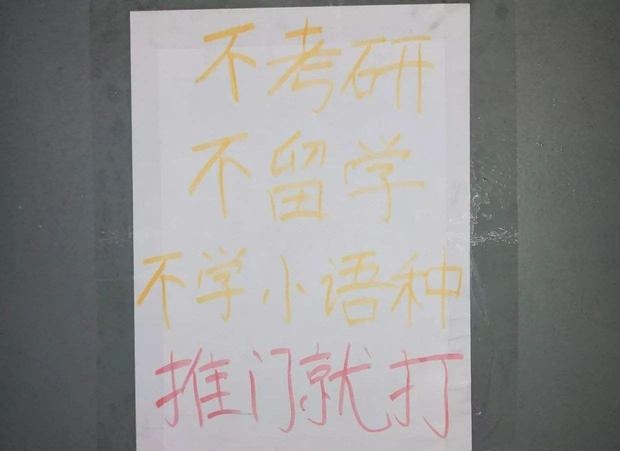 不考研
不留学
不学小语种
推门就打